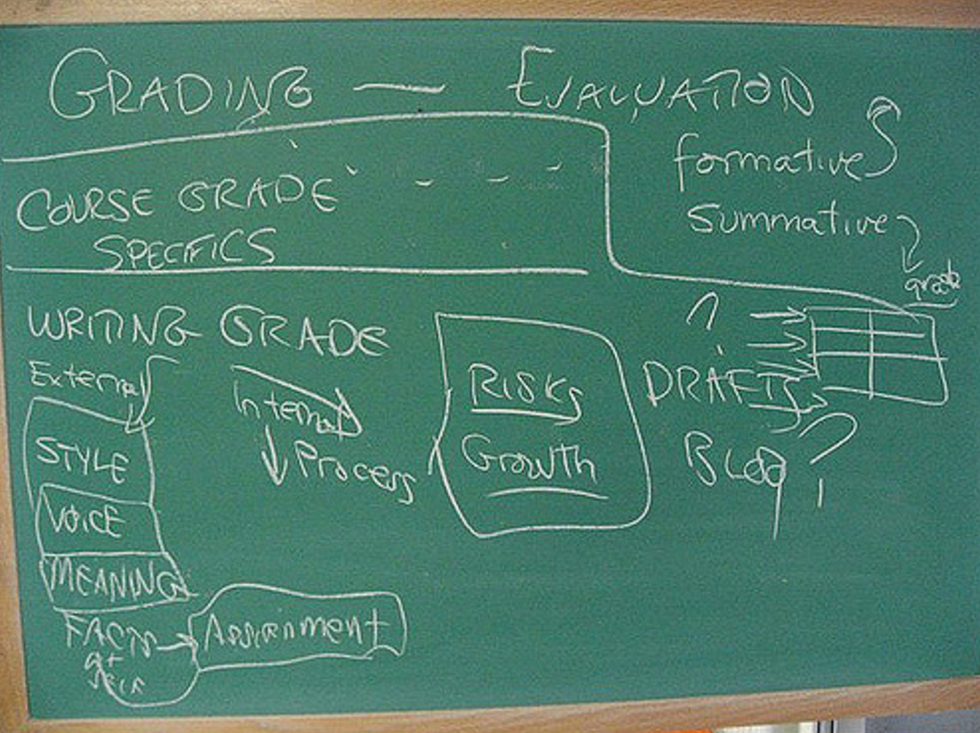 GRADING — EVALUATION
formative
summative
grade
COURSE GRADE
SPECIFICS
WRITING GRADE
External
Internal
Process
STYLE
VOICE
MEANING
FACTS
Assignment
RISKS
Growth
DRAFTS
BLOG ?